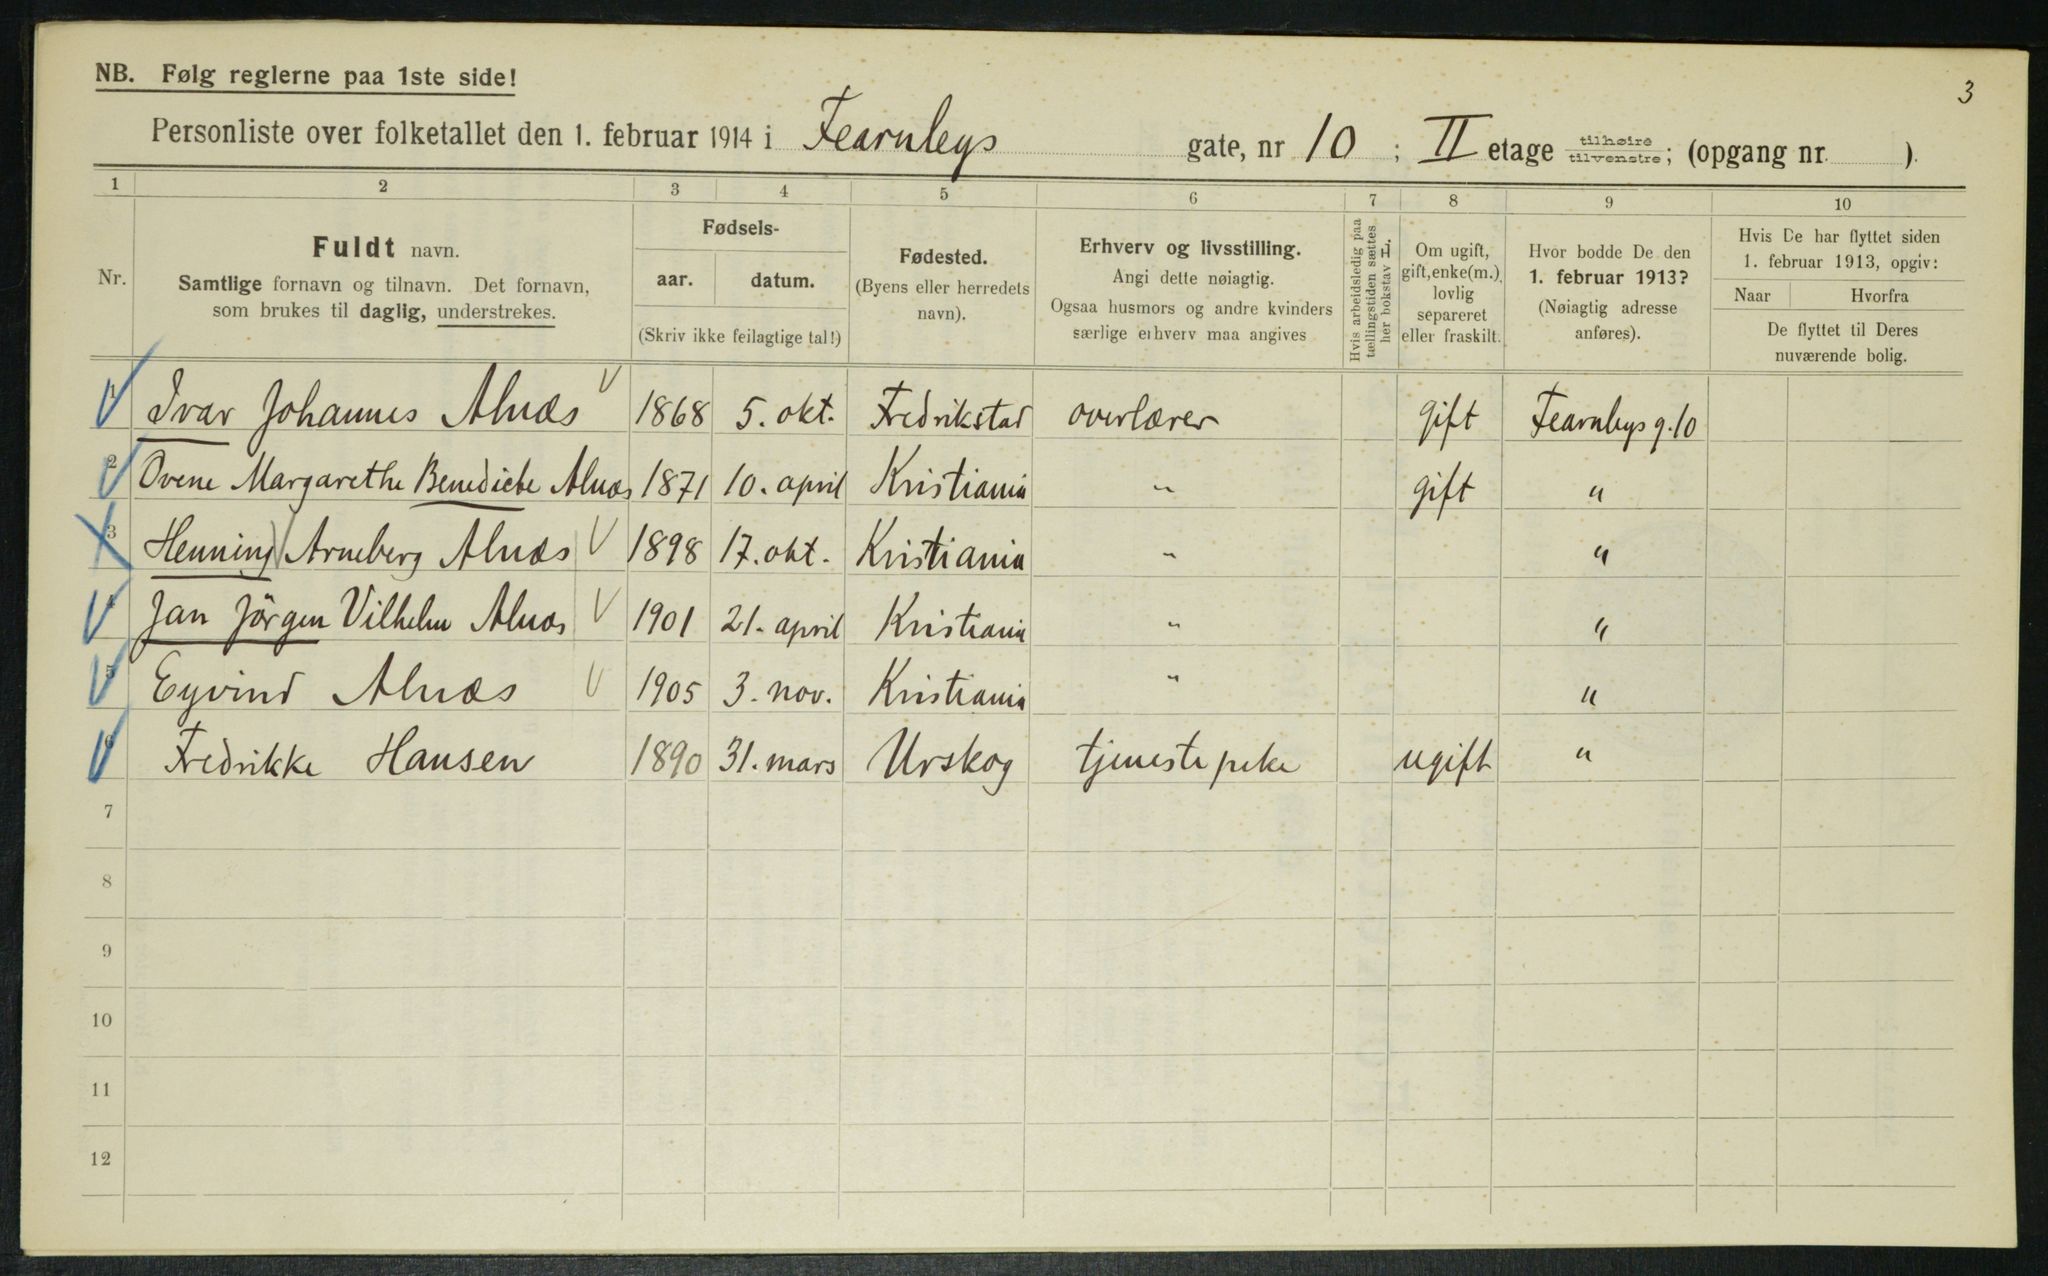 3
NB. Følg reglerne paa 1ste side!
Personliste over folketallet den 1. februar 1914 i Fearnleys gate, nr 10 ; II etage tilhøire tilvenstre; (opgang nr. ).
1 2 3 4 5 6 7 8 9 10
Nr.
Fuldt navn.
Samtlige fornavn og tilnavn. Det fornavn,
som brukes til daglig, understrekes.
Fødsels-
aar. datum.
(Skriv ikke feilagtige tal!)
Fødested.
(Byens eller herredets
navn).
Erhverv og livsstilling.
Angi dette nøiagtig.
Ogsaa husmors og andre kvinders
særlige erhverv maa angives
Hvis arbeidsledig paa
tællingstiden sættes
her bokstav L.
Om ugift,
gift, enke(m.),
lovlig
separeret
eller fraskilt.
Hvor bodde De den
1. februar 1913?
(Nøiagtig adresse
anføres).
Hvis De har flyttet siden
1. februar 1913, opgiv:
Naar Hvorfra
De flyttet til Deres
nuværende bolig.
1 Ivar Johannes Alnæs 1868 5. okt. Fredrikstad overlærer gift Fearnleys g. 10
2 Ovene Margarethe Benedicte Alnæs 1871 10. april Kristiania " gift "
3 Henning Arneberg Alnæs 1898 17. okt. Kristiania " "
4 Jan Jörgen Vilhelm Alnæs 1901 21. april Kristiania " "
5 Eyvind Alnæs 1905 3. nov. Kristiania " "
6 Fredrikke Hansen 1890 31. mars Urskog tjenestepike ugift "
7
8
9
10
11
12